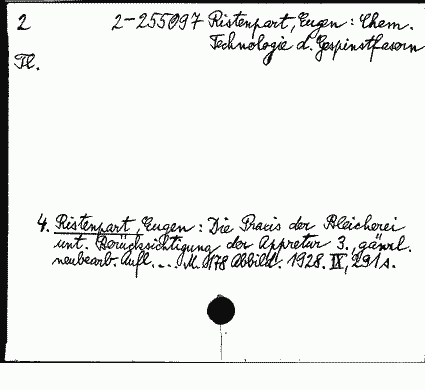 2 2-255097 Ristenpart, Eugen: Chem.
Technologie d. Gespinstfasern
Tl.
4. Ristenpart, Eugen: Die Praxis der Bleicherei
unt. Berücksichtigung der Appretur 3., gänzl.
neubearb. Aufl. ... M. 178 Abbild. 1928. IX, 291 s.